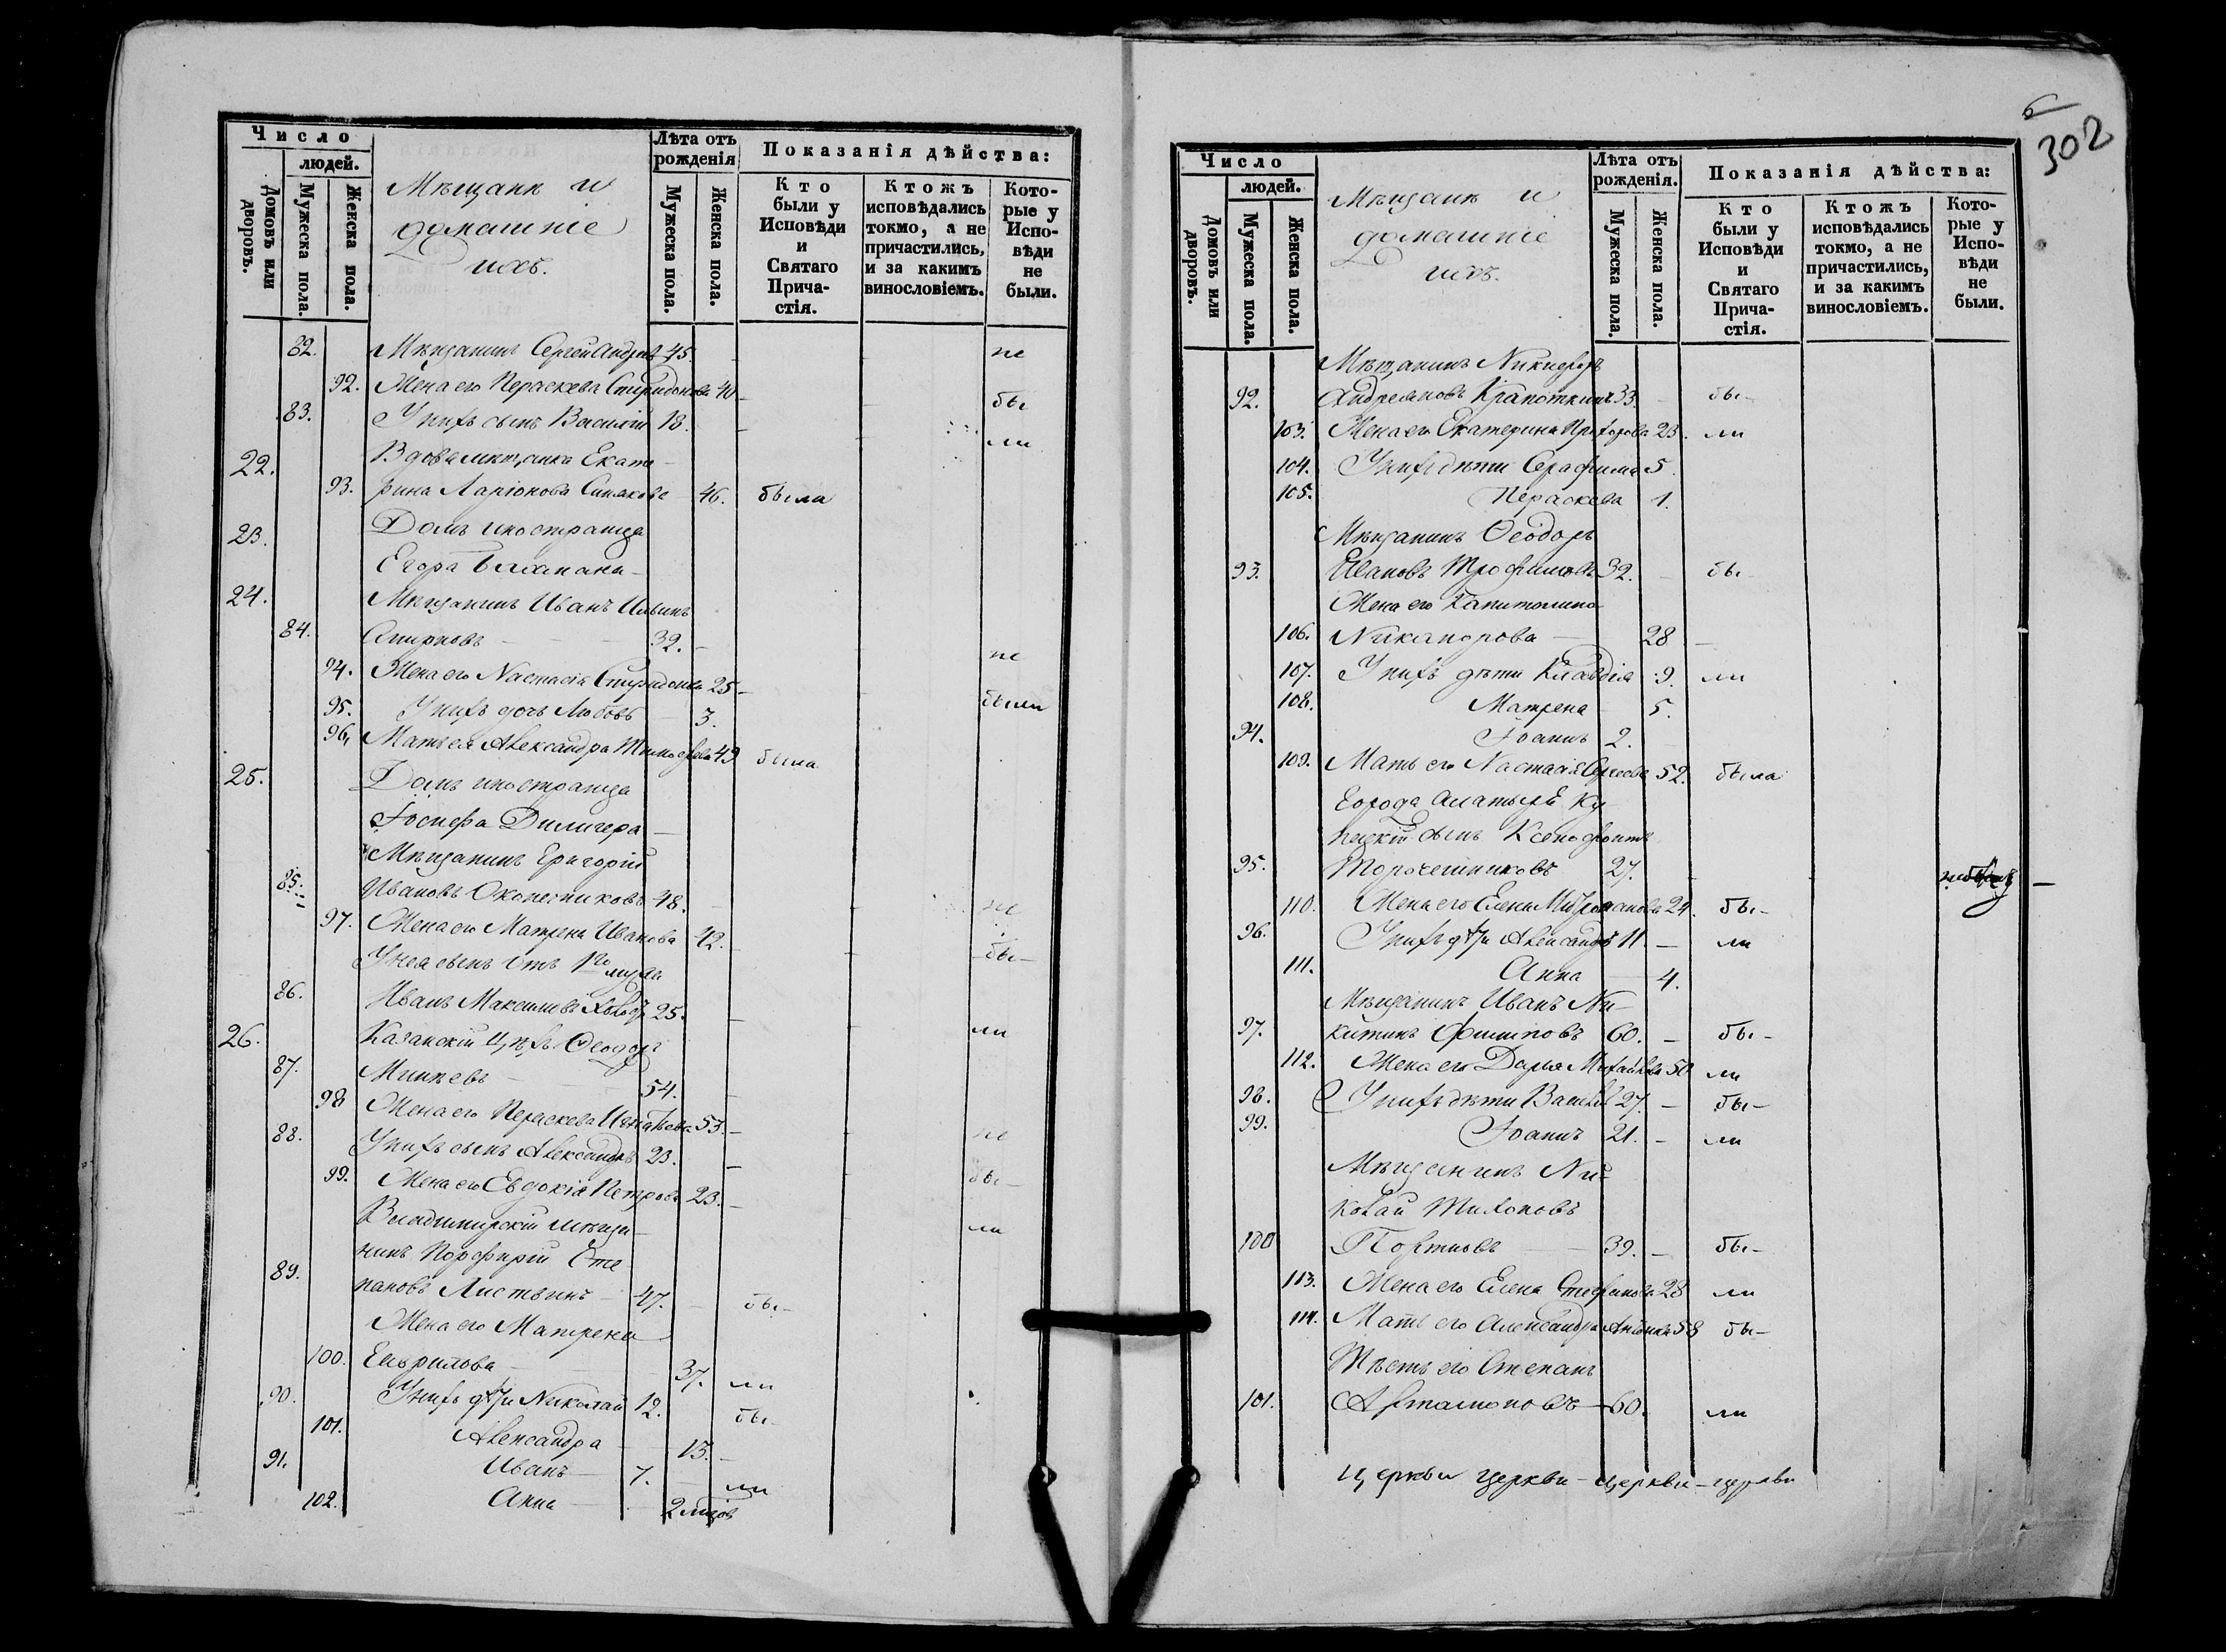 Число
людей.
Домовъ или дворовъ.
Мужеска пола.
Женска пола.
Мѣщане и
домашніе
ихъ.
Лѣта отъ рожденія
Мужеска пола.
Женска пола.
Показанія дѣйства:
Кто были у Исповѣди и Святаго Прича-стія.
Ктожъ исповѣдались токмо, а не причастились, и за какимъ винословіемъ.
Кото-рые у Испо-вѣди не были.
82. Мѣщанинъ Сергей Андреевъ 45. - - не
92. Жена его Параскева Спиридонова 40 - - бы
83. У нихъ сынъ Василій 18. - ли
22. Вдова мѣщанка Екате-
93. рина Ларіонова Синякова 46. была
23. Домъ иностранца
Егора
24. Мѣщанинъ Иванъ Ильинъ
84. Смирновъ - 32. - не
94. Жена его Настасія Спиридонова 25 -
95. У нихъ дочь Любовь - 3. были
96. Мать ея Александра Тимофеева 49 была
25. Домъ иностранца
Іосифа Дилигера -
Мѣщанинъ Григорій
85. Ивановъ Околесниковъ 48. - не
97. Жена его Матрена Иванова 42. - бы-
У нея сынъ отъ 1го мужа
86. Иванъ Максимовъ 25. - - ли
26. Казанскій цѣхъ Ѳеодоръ
87. Минѣевъ - 54. -
98 Жена его Параскева Игнатьева 53. - - не
88. У нихъ сынъ Александръ 23. -
99. Жена его Евдокія Петрова 23. - бы-
Владимирскій мѣща- ли
нинъ Порфирій Сте-
89. пановъ Листвинъ - 47. - бы-
Жена его Матрена
100. Гаврилова - 37. ли
90. У нихъ дѣти Николай 12. бы-
101. Александра - 13. -
91. Иванъ - 7. - ли
102. Анна - 2 мѣсяцовъ
6
302
Число
людей.
Домовъ или дворовъ.
Мужеска пола.
Женска пола.
Мѣщане и
домашніе
ихъ.
Лѣта отъ рожденія.
Мужеска пола.
Женска пола.
Показанія дѣйства:
Кто были у Исповѣди и Святаго Прича-стія.
Ктожъ исповѣдались токмо, а не причастились, и за какимъ винословіемъ.
Кото-рые у Испо-вѣди не были.
Мѣщанинъ Никифоръ
92. Андреяновъ Крапоткинъ 33. - бы-
103. Жена его Екатерина Прохорова 23. ли
104. У нихъ дѣти Серафима 5.
105. Параскева 1.
Мѣщанинъ Ѳеодоръ
93. Ивановъ Трофимовъ 32. - бы-
Жена его Капитолина
106. Никанорова - 28 -
107. У нихъ дѣти Клавдія 9. ли
108. Матрена 5.
94. Іоаннъ 2.
109. Мать его Настасія Сергеева 52. была
Города Алатыря Ку-
пецкій сынъ Ксенофонтъ
95. Торочешниковъ 27. -
110. Жена его Елена Митрофанова 24. бы-
96. У нихъ дѣти Александръ 11. - ли
111. Анна - 4.
Мѣщанинъ Иванъ Ни-
97. китинъ Филиповъ 60. - бы-
112. Жена его Дарья Михайлова 50 ли
98. У нихъ дѣти Василій 27. - бы-
99. Іоаннъ 21. - ли
Мѣщанинъ Ни-
колай Тихоновъ
100 Портновъ - 39. - бы-
113. Жена его Елена Стефанова 28 ли
114. Мать его Александра Антонова 58 бы-
Тесть его Степанъ
101. Артамоновъ - 60. ли
Церкви церкви - церкви - церкви